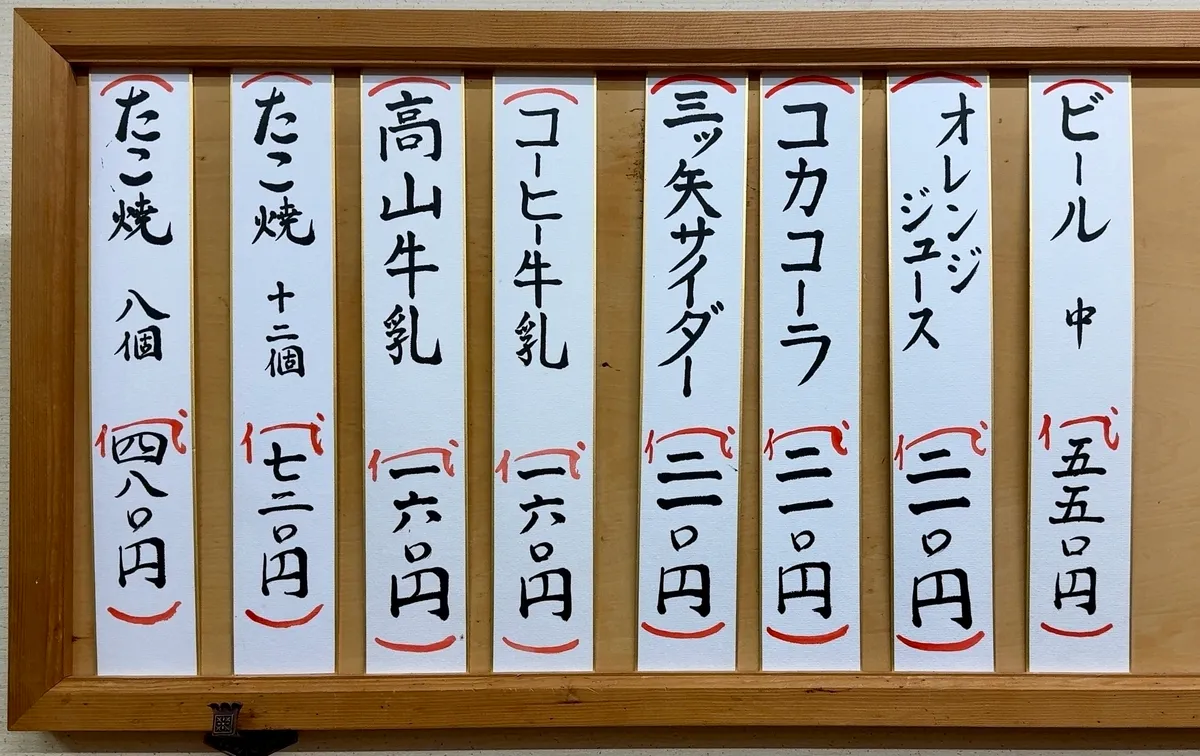 ビール 中
代 五五〇円
オレンジ
ジュース
代 二一〇円
コカコーラ
代 二一〇円
三ッ矢サイダー
代 二一〇円
コーヒー牛乳
代 一六〇円
高山牛乳
代 一六〇円
たこ焼 十二個
代 七二〇円
たこ焼 八個
代 四八〇円